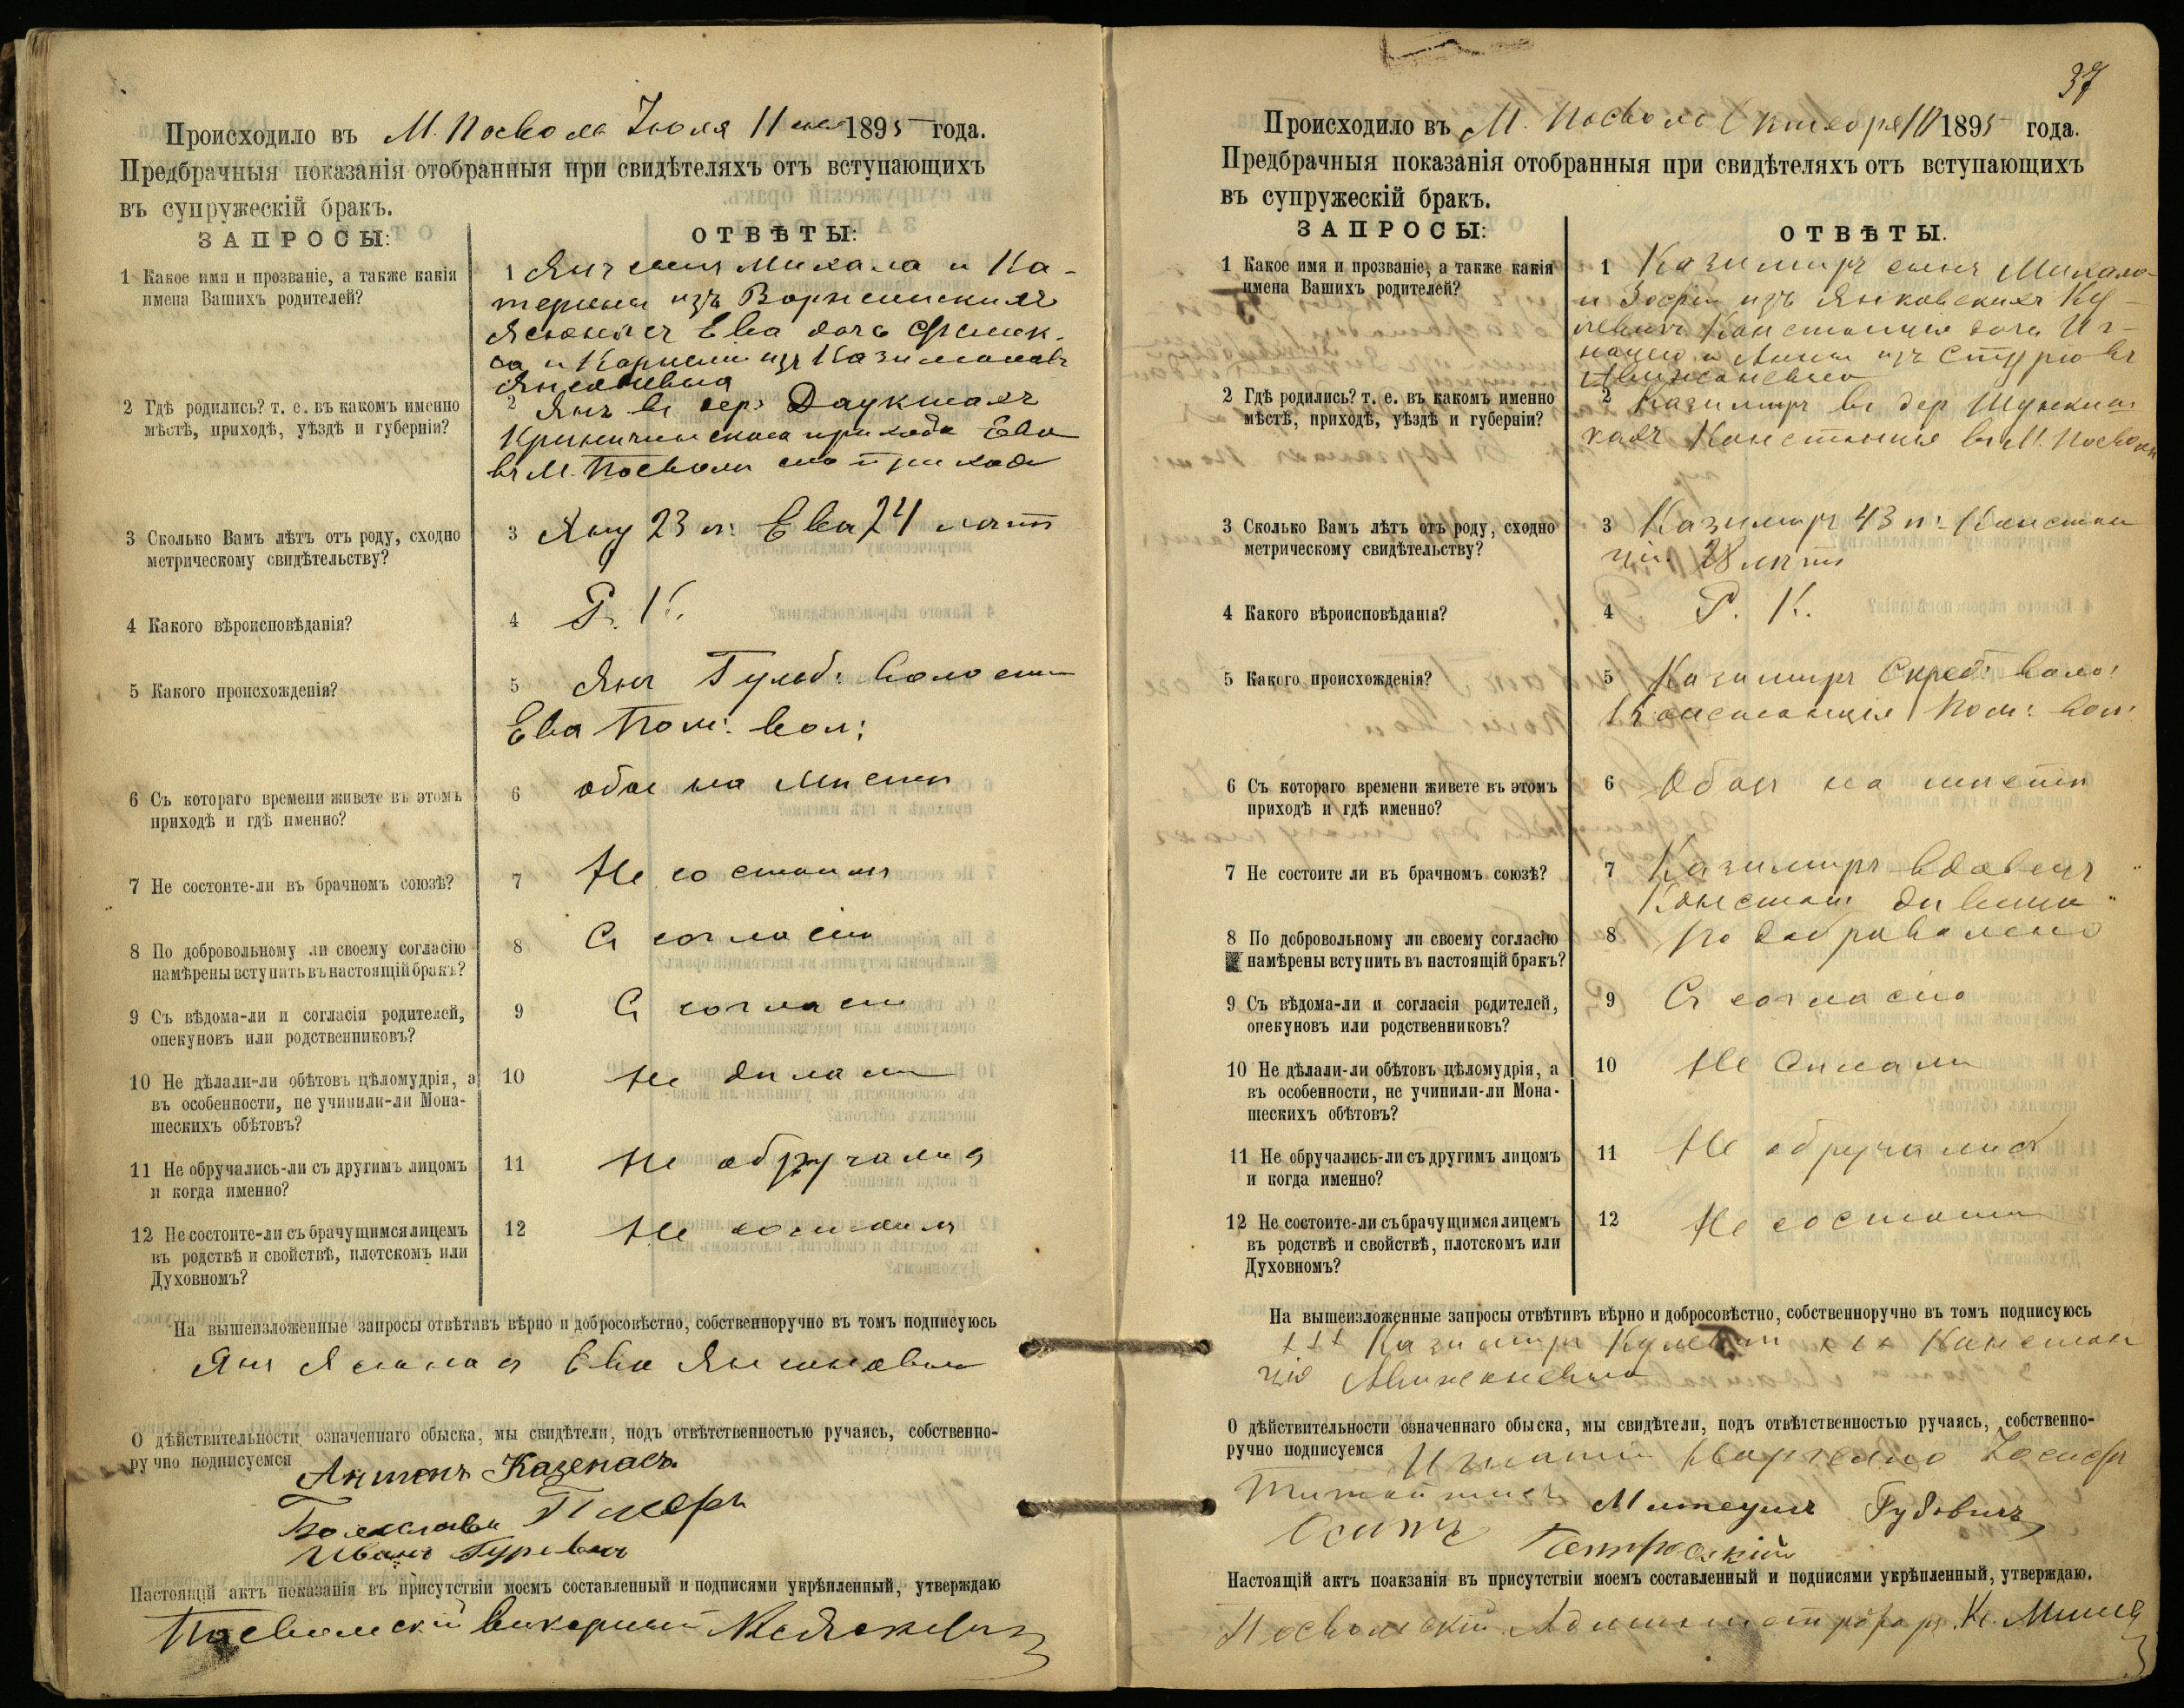 Происходило въ М. Посволѣ Іюля 11 дня 1895 года.
Предбрачныя показанія отобранныя при свидѣтеляхъ отъ вступающихъ
въ супружескій бракъ.
ЗАПРОСЫ:
ОТВѢТЫ:
1 Какое имя и прозваніе, а также какія
имена Вашихъ родителей?
1 Янъ сынъ Михала и Ка-
терины изъ
Ева дочь
са и изъ
2 Гдѣ родились? т. е. въ какомъ именно
мѣстѣ, приходѣ, уѣздѣ и губерніи?
2 Янъ въ дер. Даукшахъ
прихода Ева
въ М. Посволи прихода
3 Сколько Вамъ лѣтъ отъ роду, сходно
метрическому свидѣтельству?
3 Яну 23 л: Ева 24 лѣтъ
4 Какого вѣроисповѣданія?
4 Р. К.
5 Какого происхожденія?
5 Янъ Гульб: волости
Ева Пом: вол:
6 Съ котораго времени живете въ этомъ
приходѣ и гдѣ именно?
6 обое на мѣстѣ
7 Не состоите-ли въ брачномъ союзѣ?
7 Не состоимъ
8 По добровольному ли своему согласію
намѣрены вступить въ настоящій бракъ?
8 Съ согласія
9 Съ вѣдома-ли и согласія родителей,
опекуновъ или родственниковъ?
9 Съ согласія
10 Не дѣлали-ли обѣтовъ цѣломудрія, а
въ особенности, не учинили-ли Мона-
шескихъ обѣтовъ?
10 Не дѣлали
11 Не обручались-ли съ другимъ лицомъ
и когда именно?
11 Не обручался
12 Не состоите-ли съ брачущимся лицемъ
въ родствѣ и свойствѣ, плотскомъ или
Духовномъ?
12 Не состоимъ
На вышеизложенные запросы отвѣтивъ вѣрно и добросовѣстно, собственноручно въ томъ подписуюсь
Янъ Ева
О дѣйствительности означеннаго обыска, мы свидѣтели, подъ отвѣтственностью ручаясь, собственно-
ручно подписуемся Антонъ Казенасъ
Болеславъ
Иванъ Гуревичъ
Настоящій актъ показанія въ присутствіи моемъ составленный и подписями укрѣпленный, утверждаю
Посвольскій викарный
37
Происходило въ М. Посволѣ Октября 10 1895 года.
Предбрачныя показанія отобранныя при свидѣтеляхъ отъ вступающихъ
въ супружескій бракъ.
ЗАПРОСЫ:
ОТВѢТЫ.
1 Какое имя и прозваніе, а также какія
имена Вашихъ родителей?
1 Казимиръ сынъ Михала
и Зофіи изъ Янковскихъ Ку-
левичъ Констанція дочь Иг-
нація и Анны изъ
2 Гдѣ родились? т. е. въ какомъ именно
мѣстѣ, приходѣ, уѣздѣ и губерніи?
2 Казимиръ въ дер
Констанція въ М. Посволи
3 Сколько Вамъ лѣтъ отъ роду, сходно
метрическому свидѣтельству?
3 Казимиръ 43 л: Констан
ція 28 лѣтъ
4 Какого вѣроисповѣданія?
4 Р. К.
5 Какого происхожденія?
5 Казимиръ Скреб: воло:
Констанція Пом: вол:
6 Съ котораго времени живете въ этомъ
приходѣ и гдѣ именно?
6 Обои на мѣстѣ
7 Не состоите ли въ брачномъ союзѣ?
7 Казимиръ вдовецъ
Констан: дѣвица
8 По добровольному ли своему согласію
намѣрены вступить въ настоящій бракъ?
8 По добровольно
9 Съ вѣдома-ли и согласія родителей,
опекуновъ или родственниковъ?
9 Съ согласію
10 Не дѣлали-ли обѣтовъ цѣломудрія, а
въ особенности, не учинили-ли Мона-
шескихъ обѣтовъ?
10 Не дѣлали
11 Не обручались-ли съ другимъ лицомъ
и когда именно?
11 Не обручались
12 Не состоите-ли съ брачущимся лицемъ
въ родствѣ и свойствѣ, плотскомъ или
Духовномъ?
12 Не состоимъ
На вышеизложенные запросы отвѣтивъ вѣрно и добросовѣстно, собственноручно въ томъ подписуюсь
+++ Казимиръ Кулевичъ +++ Констан
ція
О дѣйствительности означеннаго обыска, мы свидѣтели, подъ отвѣтственностью ручаясь, собственно-
ручно подписуемся Игнатій Іосифъ
Матеушъ Гудовичъ
Осипъ Петровскій
Настоящій актъ поакзанія въ присутствіи моемъ составленный и подписями укрѣпленный, утверждаю.
Посвольскій Администраторъ К.